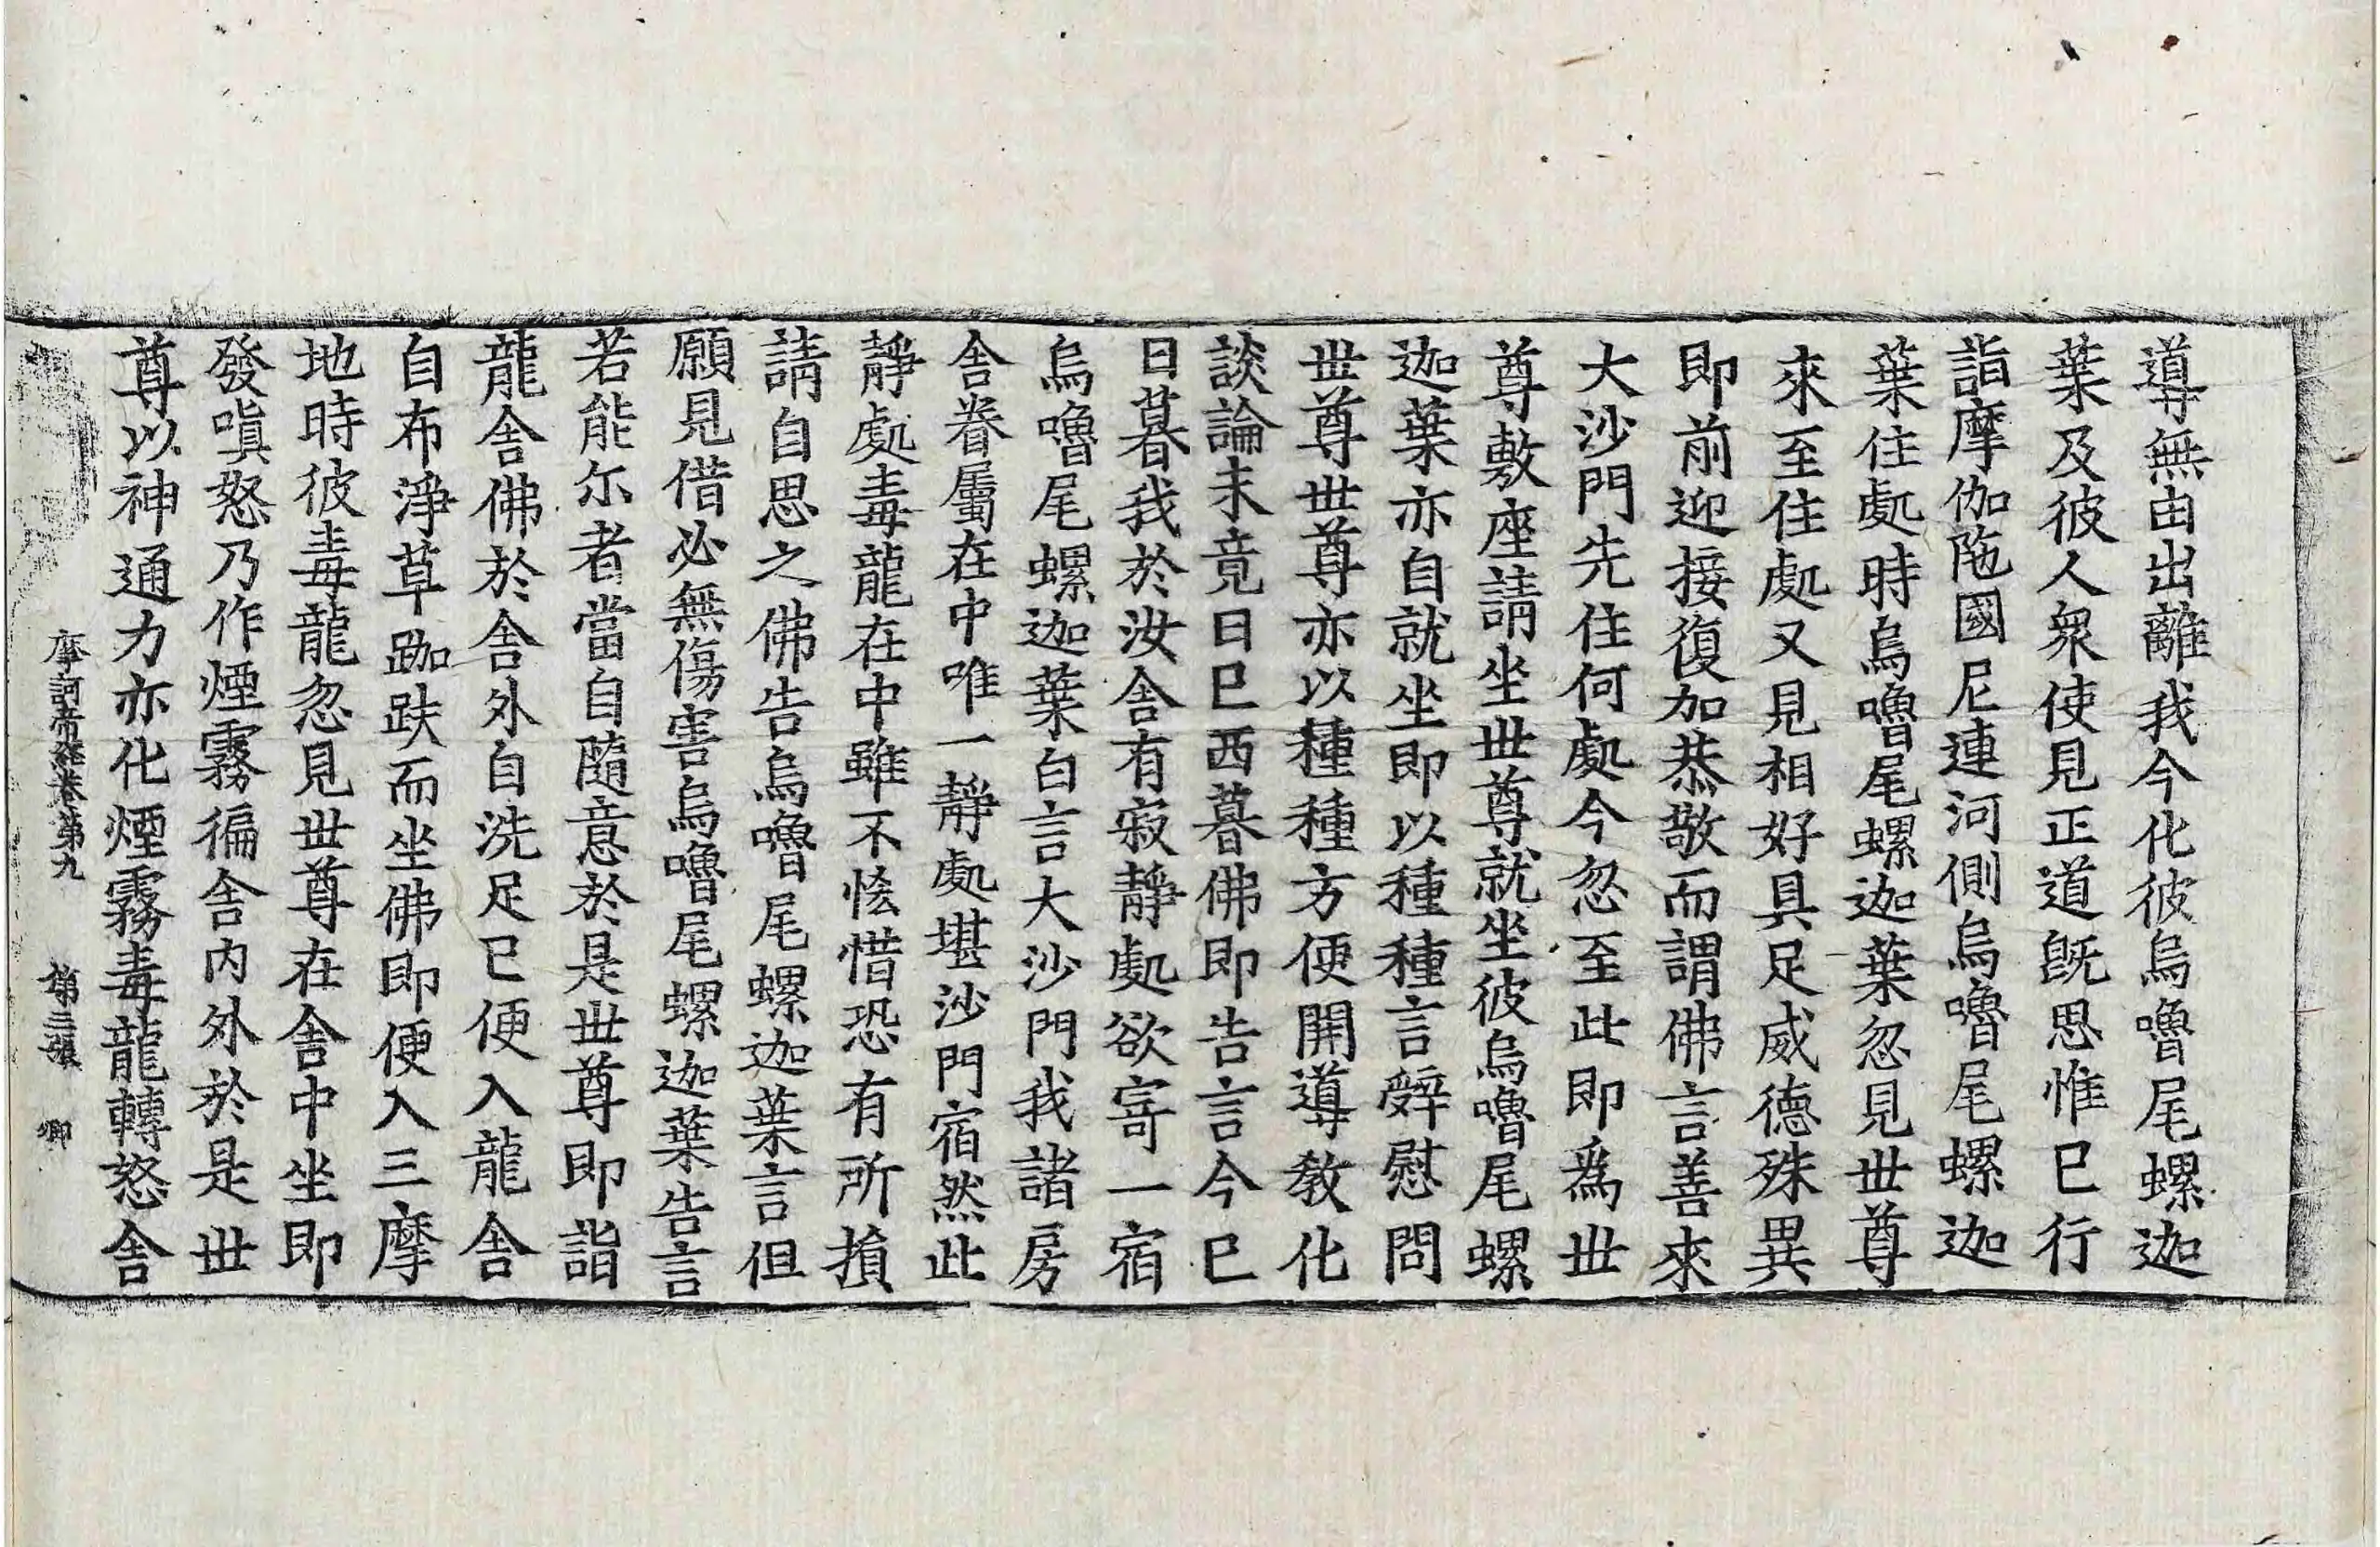 導無由出離我今化彼烏嚕尾螺迦
葉及彼人衆使見正道旣思惟已行
詣摩伽陁國尼連河側烏嚕尾螺迦
葉住處時烏嚕尾螺迦葉忽見世尊
來至住處又見相好具足威德殊異
即前迎接復加恭敬而謂佛言善來
大沙門先住何處今忽至此即爲世
尊敷座請坐世尊就坐彼烏嚕尾螺
迦葉亦自就坐即以種種言辝慰問
世尊世尊亦以種種方便開導敎化
談論未竟日已西暮佛即告言今已
日暮我於汝舍有寂靜處欲寄一宿
烏嚕尾螺迦葉白言大沙門我諸房
舍眷屬在中唯一靜處堪沙門宿然此
靜處毒龍在中雖不恡惜恐有所損
請自思之佛告烏嚕尾螺迦葉言但
願見借必無傷害烏嚕尾螺迦葉告言
若能尓者當自隨意於是世尊即詣
龍舍佛於舍外自洗足已便入龍舍
自布淨草跏趺而坐佛即便入三摩
地時彼毒龍忽見世尊在舍中坐即
發嗔怒乃作煙霧徧舍內外於是世
尊以神通力亦化煙霧毒龍轉怒舍
摩訶帝經卷第九 第三張 卿